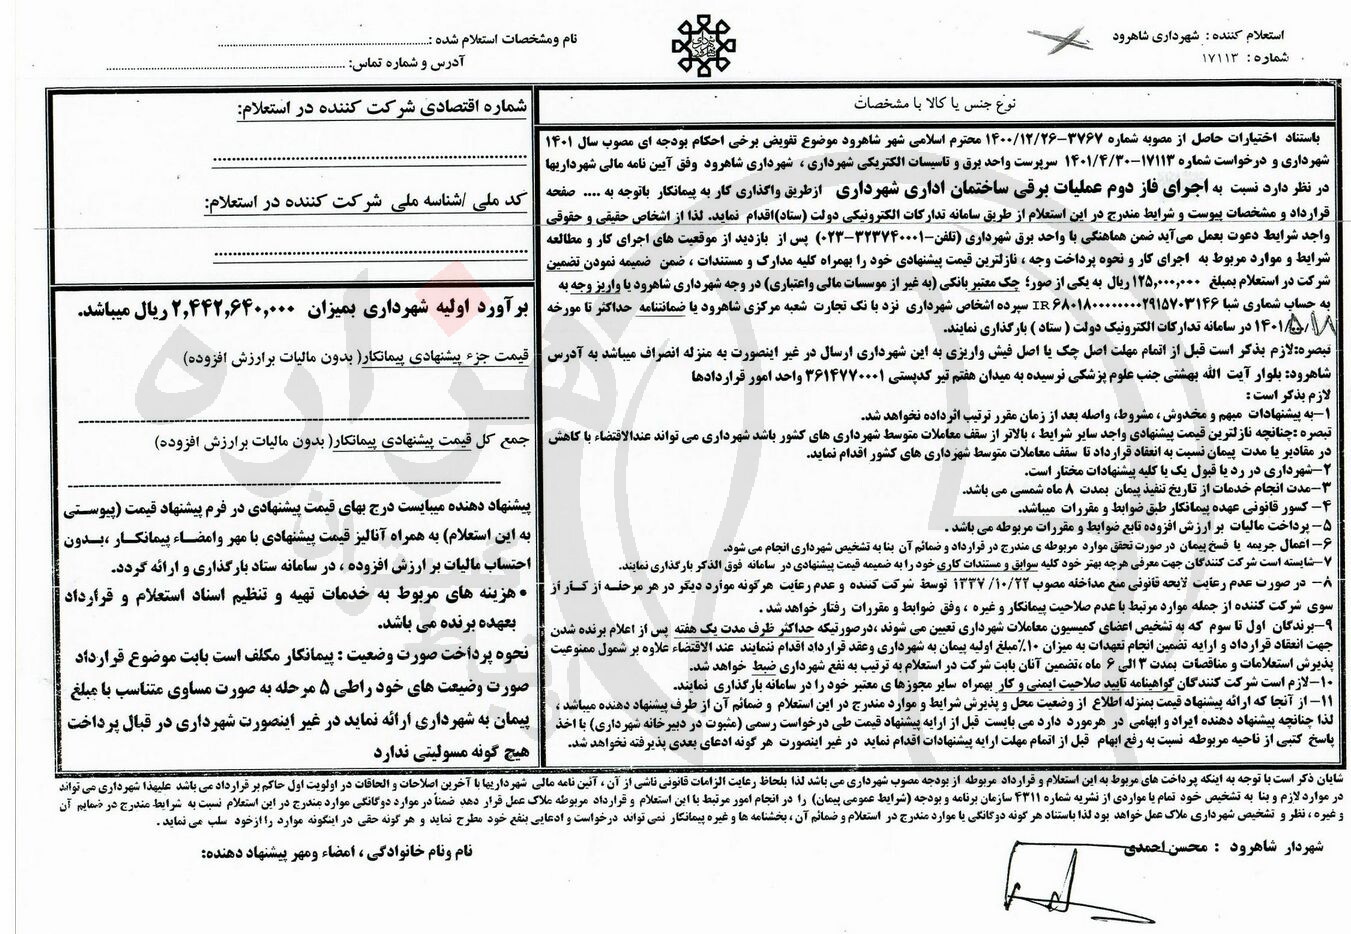 استعلام کننده : شهرداری شاهرود
شماره : ۱۷۱۱۳
نام ومشخصات استعلام شده :
آدرس و شماره تماس:
نوع جنس یا کالا با مشخصات
باستناد اختیارات حاصل از مصوبه شماره ۳۷۶۷-۱۴۰۰/۱۲/۲۶ محترم اسلامی شهر شاهرود موضوع تفویض برخی احکام بودجه ای مصوب سال ۱۴۰۱
شهرداری و درخواست شماره ۱۷۱۱۳-۱۴۰۱/۴/۳۰ سرپرست واحد برق و تاسیسات الکتریکی شهرداری ، شهرداری شاهرود وفق آیین نامه مالی شهرداریها
در نظر دارد نسبت به اجرای فاز دوم عملیات برقی ساختمان اداری شهرداری ازطریق واگذاری کار به پیمانکار باتوجه به .... صفحه
قرارداد و مشخصات پیوست و شرایط مندرج در این استعلام از طریق سامانه تدارکات الکترونیکی دولت (ستاد)اقدام نماید. لذا از اشخاص حقیقی و حقوقی
واجد شرایط دعوت بعمل می‌آید ضمن هماهنگی با واحد برق شهرداری (تلفن-۳۲۳۷۴۰۰۰۱-۰۲۳) پس از بازدید از موقعیت های اجرای کار و مطالعه
شرایط و موارد مربوط به اجرای کار و نحوه پرداخت وجه ، نازلترین قیمت پیشنهادی خود را بهمراه کلیه مدارک و مستندات ، ضمن ضمیمه نمودن تضمین
شرکت در استعلام بمبلغ ۱۲۵,۰۰۰,۰۰۰ ریال به یکی از صور؛ چک معتبر بانکی (به غیر از موسسات مالی واعتباری) در وجه شهرداری شاهرود یا واریز وجه به
به حساب شماری شبا IR ۶۸۰۱۸۰۰۰۰۰۰۰۰۲۹۱۵۷۰۳۱۴۶ سپرده اشخاص شهرداری نزد بانک تجارت شعبه مرکزی شاهرود یا ضمانتنامه حداکثر تا مورخه
۱۴۰۱/۵/۱۸ در سامانه تدارکات الکترونیک دولت ( ستاد ) بارگذاری نمایند.
تبصره:لازم بذکر است قبل از اتمام مهلت اصل چک یا اصل فیش واریزی به این شهرداری ارسال در غیر اینصورت به منزله انصراف میباشد به آدرس
شاهرود: بلوار آیت الله بهشتی جنب علوم پزشکی نرسیده به میدان هفتم تیر کدپستی ۳۶۱۴۷۷۰۰۰۱ واحد امور قراردادها
لازم بذکر است :
۱-به پیشنهادات مبهم و مخدوش ، مشروط، واصله بعد از زمان مقرر ترتیب اثرداده نخواهد شد.
تبصره :چنانچه نازلترین قیمت پیشنهادی واجد سایر شرایط ، بالاتر از سقف معاملات متوسط شهرداری های کشور باشد شهرداری می تواند عندالاقتضاء با کاهش
در مقادیر یا مدت پیمان نسبت به انعقاد قرارداد تا سقف معاملات متوسط شهرداری های کشور اقدام نماید.
۲-شهرداری در رد یا قبول یک یا کلیه پیشنهادات مختار است.
۳-مدت انجام خدمات از تاریخ تنفیذ پیمان بمدت ۸ ماه شمسی می باشد.
۴- کسور قانونی عهده پیمانکار طبق ضوابط و مقررات میباشد.
۵- پرداخت مالیات بر ارزش افزوده تابع ضوابط و مقررات مربوطه می باشد .
۶- اعمال جریمه یا فسخ پیمان در صورت تحقق موارد مربوطه ی مندرج در قرارداد و ضمائم آن بنا به تشخیص شهرداری انجام می شود.
۷-شایسته است شرکت کنندگان جهت معرفی هرچه بهتر خود کلیه سوابق و مستندات کاری خود را به ضمیمه قیمت پیشنهادی در سامانه فوق الذکر بارگذاری نمایند.
۸- در صورت عدم رعایت لایحه قانونی منع مداخله مصوب ۱۳۳۷/۱۰/۲۲ توسط شرکت کننده و عدم رعایت هرگونه موارد دیگر در هر مرحله از کار از
سوی شرکت کننده از جمله موارد مرتبط با عدم صلاحیت پیمانکار و غیره ، وفق ضوابط و مقررات رفتار خواهد شد .
۹-برندگان اول تا سوم که به تشخیص اعضای کمیسیون معاملات شهرداری تعیین می شوند ،درصورتیکه حداکثر ظرف مدت یک هفته پس از اعلام برنده شدن
جهت انعقاد قرارداد و ارایه تضمین انجام تعهدات به میزان ۱۰٪مبلغ اولیه پیمان به شهرداری وعقد قرارداد اقدام ننمایند عند الاقتضاء علاوه بر شمول ممنوعیت
پذیرش استعلامات و مناقصات بمدت ۳ الی ۶ ماه،تضمین آنان بابت شرکت در استعلام به ترتیب به نفع شهرداری ضبط خواهد شد.
۱۰-لازم است شرکت کنندگان گواهینامه تایید صلاحیت ایمنی و کار بهمراه سایر مجوزها ی معتبر خود را در سامانه بارگذاری نمایند.
۱۱- از آنجا که ارائه پیشنهاد قیمت بمنزله اطلاع از وضعیت محل و پذیرش شرایط و موارد مندرج در این استعلام و ضمائم آن از طرف پیشنهاد دهنده میباشد ،
لذا چنانچه پیشنهاد دهنده ایراد و ابهامی در هرمورد دارد می بایست قبل از ارایه پیشنهاد قیمت طی درخواست رسمی (مثبوت در دبیرخانه شهرداری) با اخذ
پاسخ کتبی از ناحیه مربوطه نسبت به رفع ابهام قبل از اتمام مهلت ارایه پیشنهادات اقدام نماید در غیر اینصورت هر گونه ادعای بعدی پذیرفته نخواهد شد.
شماره اقتصادی شرکت کننده در استعلام:
کد ملی /شناسه ملی شرکت کننده در استعلام:
برآورد اولیه شهرداری بمیزان ۲,۴۴۲,۶۴۰,۰۰۰ ریال میباشد.
قیمت جزء پیشنهادی پیمانکار( بدون مالیات برارزش افزوده)
جمع کل قیمت پیشنهادی پیمانکار( بدون مالیات برارزش افزوده)
پیشنهاد دهنده میبایست درج بهای قیمت پیشنهادی در فرم پیشنهاد قیمت (پیوستی
به این استعلام) به همراه آنالیز قیمت پیشنهادی با مهر وامضاء پیمانکار ،بدون
احتساب مالیات بر ارزش افزوده ، در سامانه ستاد بارگذاری و ارائه گردد.
• هزینه های مربوط به خدمات تهیه و تنظیم اسناد استعلام و قرارداد
بعهده برنده می باشد.
نحوه پرداخت صورت وضعیت : پیمانکار مکلف است بابت موضوع قرارداد
صورت وضیعت های خود راطی ۵ مرحله به صورت مساوی متناسب با مبلغ
پیمان به شهرداری ارائه نماید در غیر اینصورت شهرداری در قبال پرداخت
هیچ گونه مسولیتی ندارد
شایان ذکر است با توجه به اینکه پرداخت های مربوط به این استعلام و قرارداد مربوطه از بودجه مصوب شهرداری می باشد لذا بلحاظ رعایت الزامات قانونی ناشی از آن ، آئین نامه مالی شهرداریها با آخرین اصلاحات و الحاقات در اولویت اول حاکم بر قرارداد می باشد علیهذا شهرداری می تواند
در موارد لازم و بنا به تشخیص خود تمام یا مواردی از نشریه شماره ۴۳۱۱ سازمان برنامه و بودجه (شرایط عمومی پیمان) را در انجام امور مرتبط با این استعلام و قرارداد مربوطه ملاک عمل قرار دهد ضمناً در موارد دوگانگی موارد مندرج در این استعلام نسبت به شرایط مندرج در ضمایم آن
و غیره ، نظر و تشخیص شهرداری ملاک عمل خواهد بود لذا باستناد هر گونه دوگانگی یا موارد مندرج در استعلام و ضمائم آن ، بخشنامه ها و غیره پیمانکار نمی تواند درخواست و ادعایی بنفع خود مطرح نماید و هر گونه حقی در اینگونه موارد را ازخود سلب می نماید .
شهردار شاهرود : محسن احمدی
نام ونام خانوادگی ، امضاء ومهر پیشنهاد دهنده:
هزاره